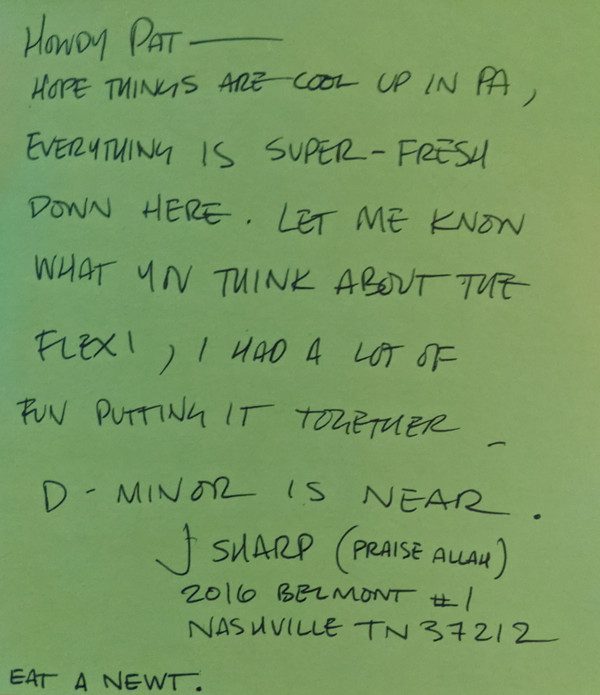 HOWDY PAT —
HOPE THINGS ARE COOL UP IN PA,
EVERYTHING IS SUPER-FRESH
DOWN HERE. LET ME KNOW
WHAT YOU THINK ABOUT THE
FLEXI, I HAD A LOT OF
FUN PUTTING IT TOGETHER –
D-MINOR IS NEAR.
J SHARP (PRAISE ALLAH)
2016 BELMONT #1
NASHVILLE TN 37212
EAT A NEWT.